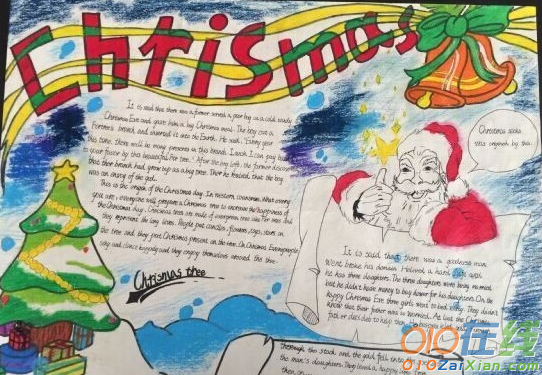 Christmas
It is said that there was a farmer served a poor boy on a cold snowy
Christmas Eve and gave him a big Christmas meal. The boy cut a
branch and inserted it into the Earth. He said, "Every year
this time, there will be many presents in this branch. I wish I can pay back
to your favor by this beautiful Per tree." After the boy left, the farmer discover
that their branch had grown up as a big tree. Then he realized, that the boy
was an envoy of the god.
This is the origin of the Christmas day. In western countries, what every
you are, everyone will prepare a Christmas tree to increase the happiness of
the Christmas day. Christmas trees are made of evergreen tree like
they represent the long lives. People put candles, flowers, toys, stars on
the tree and they put Christmas present on the tree. On Christmas Eve, people
sing and dance happily and they enjoy themselves around the tree.
Christmas tree
Christmas socks
was originate by this.
It is said that there was a goodness man
went broke his domain. He lived a hard life and
he has three daughters. The three daughters were being married,
but he didn't have money to buy dower for his daughters. On the
happy Christmas Eve three girls went to bed early. They didn't
know that their father was so worried. At last the Christmas
father decided to help them.
through the stack and the gold fell into
the man's daughters. They lived a happy
then on...
OIO在线
OIOZaiXian.com